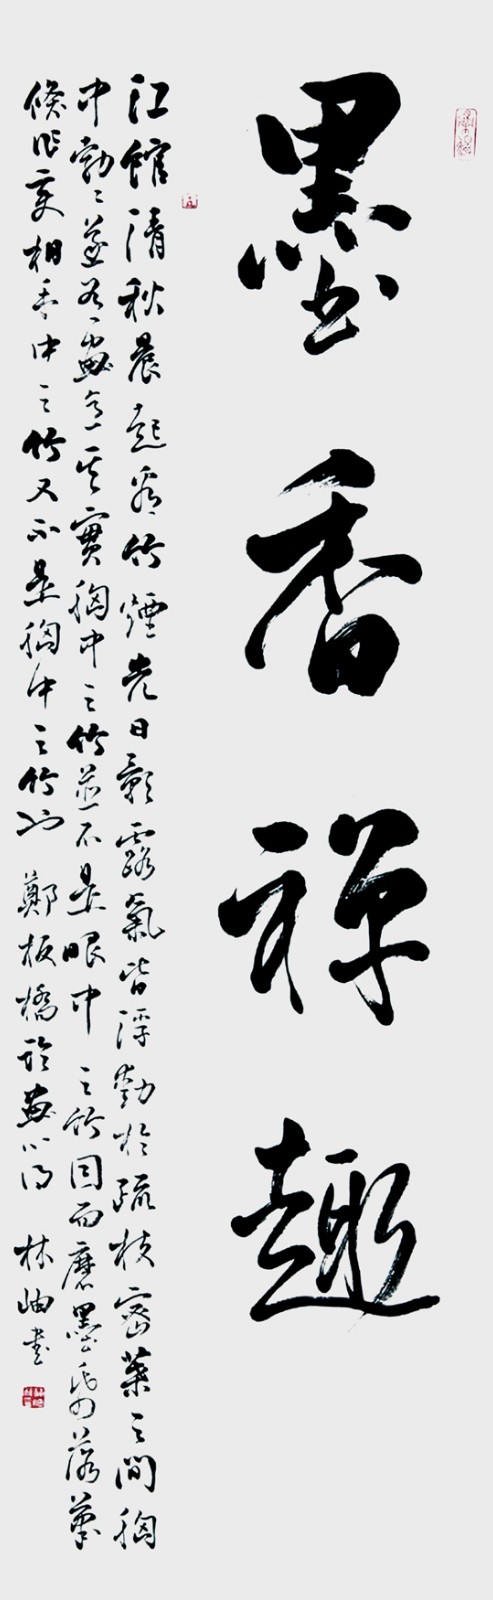 墨香禅趣
江館清秋晨起看竹煙光日影露氣皆浮動於疏枝密葉之間胸
中勃勃遂有畫意其實胸中之竹並不是眼中之竹因而磨墨展紙落筆
倏作变相手中之竹又不是胸中之竹也 鄭板橋論畫心得 林岫書